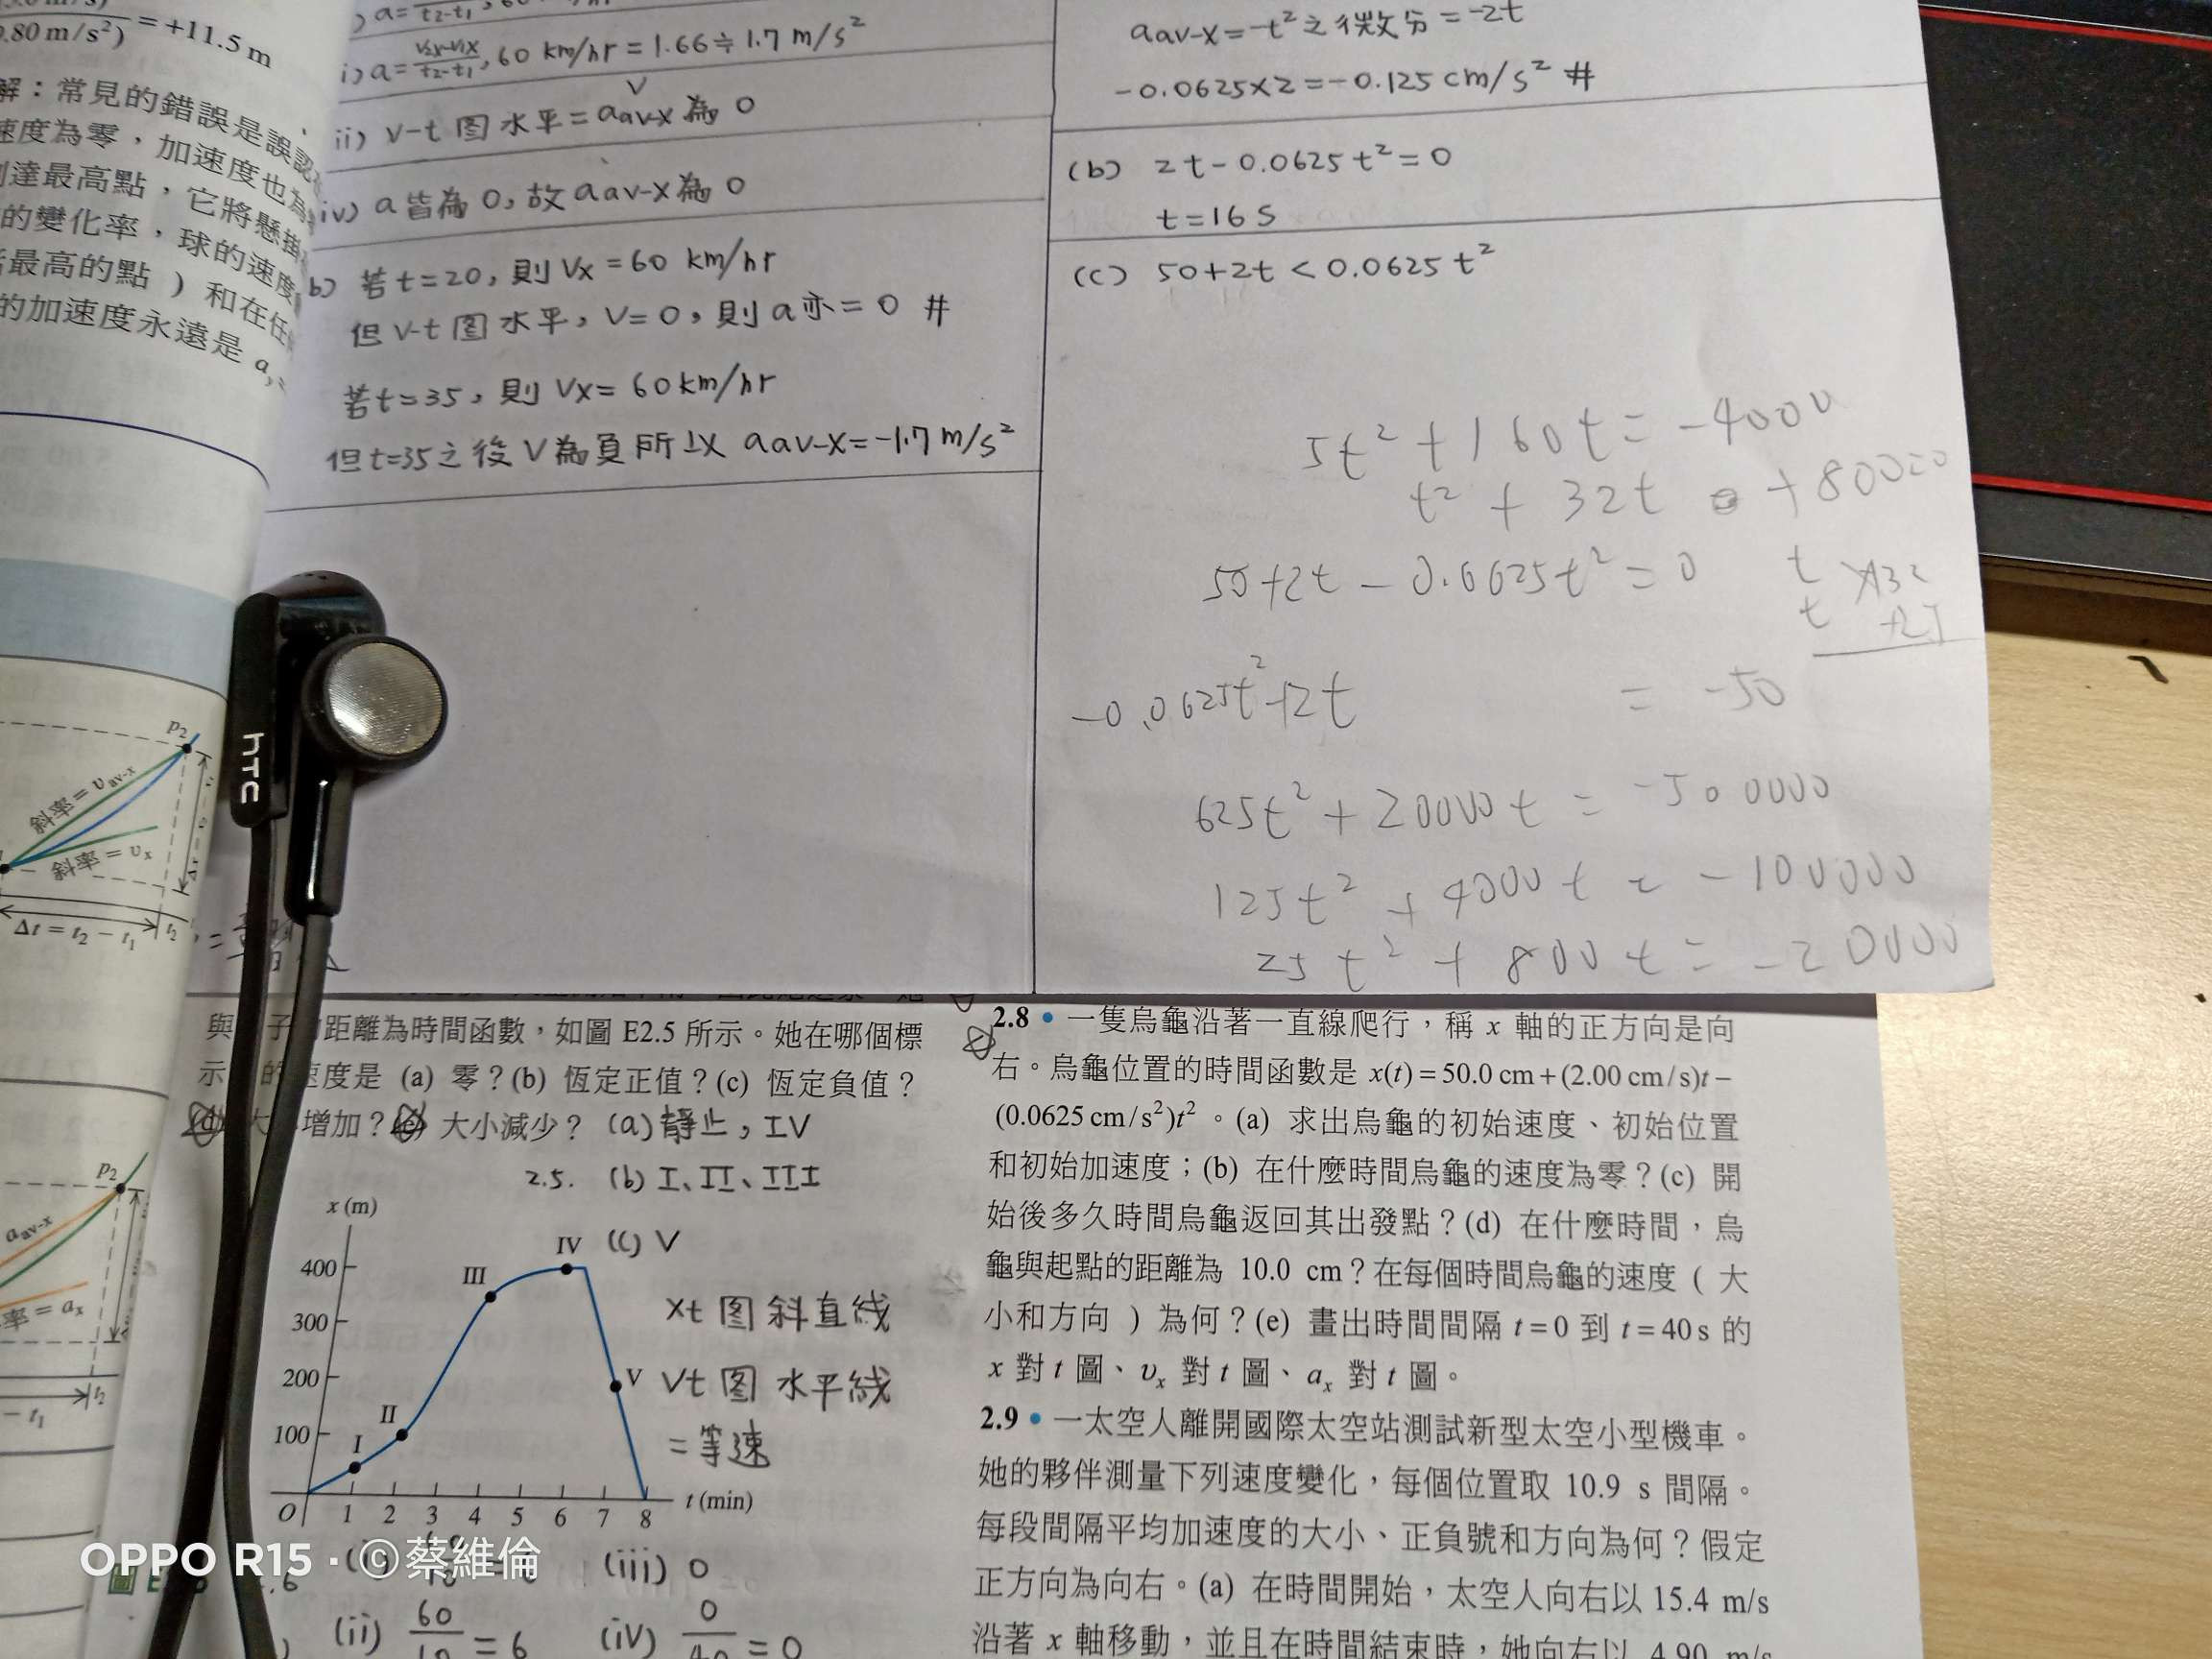 = +11.5 m
.80 m/s²)
解：常見的錯誤是誤認
速度為零，加速度也為
到達最高點，它將懸掛
的變化率，球的速度
最高的點）和在任
的加速度永遠是 a
p₂
斜率 = υav-x
斜率 = υx
Δt = t₂ − t₁
t₂
hTC
p₂
aav-x
率 = ax
− t₁
t₂
i) a = (v₂x-v₁x)/(t₂-t₁), 60 km/hr = 1.66 ≒ 1.7 m/s²
ii) V-t 图水平 = aav-x 為 0
iv) a 皆為 0, 故 aav-x 為 0
b) 若 t=20, 則 Vx = 60 km/hr
但 V-t 图水平, V=0, 則 a 亦 = 0 #
若 t=35, 則 Vx = 60 km/hr
但 t=35 之後 V 為負所以 aav-x = -1.7 m/s²
aav-x = -t² 之微分 = -2t
-0.0625×2 = -0.125 cm/s² #
(b) 2t - 0.0625t² = 0
t = 16 s
(c) 50+2t < 0.0625t²
5t² + 160t = -4000
t² + 32t + 80000
50+2t - 0.0625t² = 0
-0.0625t²+2t = -50
625t² + 20000t = -500000
125t² + 4000t = -100000
25t² + 800t = -20000
與 子 距離為時間函數，如圖 E2.5 所示。她在哪個標
示 的速度是 (a) 零？(b) 恆定正值？(c) 恆定負值？
(d) 大 增加？(e) 大小減少？ (a) 靜止, IV
2.5. (b) I、II、III
(c) V
xt 图 斜直线
Vt 图 水平線
= 等速
x (m)
400
300
200
100
I
II
III
IV
V
O 1 2 3 4 5 6 7 8 t (min)
(iii) 0
(ii) 60/10 = 6
(iV) 0/40 = 0
2.8 • 一隻烏龜沿著一直線爬行，稱 x 軸的正方向是向
右。烏龜位置的時間函數是 x(t) = 50.0 cm + (2.00 cm/s)t −
(0.0625 cm/s²)t²。(a) 求出烏龜的初始速度、初始位置
和初始加速度；(b) 在什麼時間烏龜的速度為零？(c) 開
始後多久時間烏龜返回其出發點？(d) 在什麼時間，烏
龜與起點的距離為 10.0 cm？在每個時間烏龜的速度（大
小和方向）為何？(e) 畫出時間間隔 t = 0 到 t = 40 s 的
x 對 t 圖、υx 對 t 圖、ax 對 t 圖。
2.9 • 一太空人離開國際太空站測試新型太空小型機車。
她的夥伴測量下列速度變化，每個位置取 10.9 s 間隔。
每段間隔平均加速度的大小、正負號和方向為何？假定
正方向為向右。(a) 在時間開始，太空人向右以 15.4 m/s
沿著 x 軸移動，並且在時間結束時，她向右以 4.90 m/s
OPPO R15 · ©蔡維倫